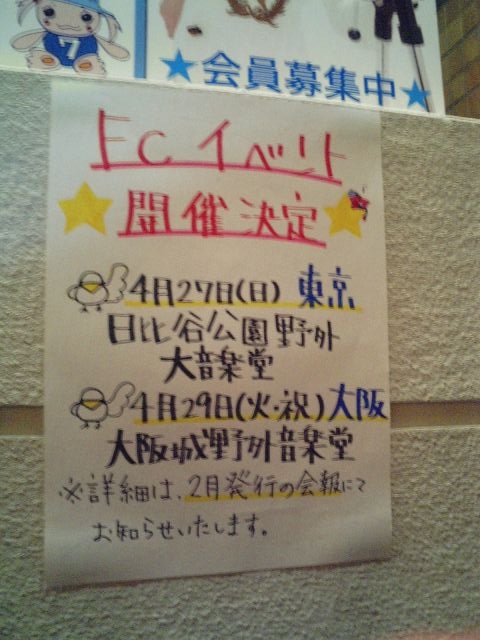 7
★会員募集中★
FCイベント
開催決定
4月27日(日) 東京
日比谷公園野外
大音楽堂
4月29日(火・祝)大阪
大阪城野外音楽堂
※詳細は、2月発行の会報にて
お知らせいたします。